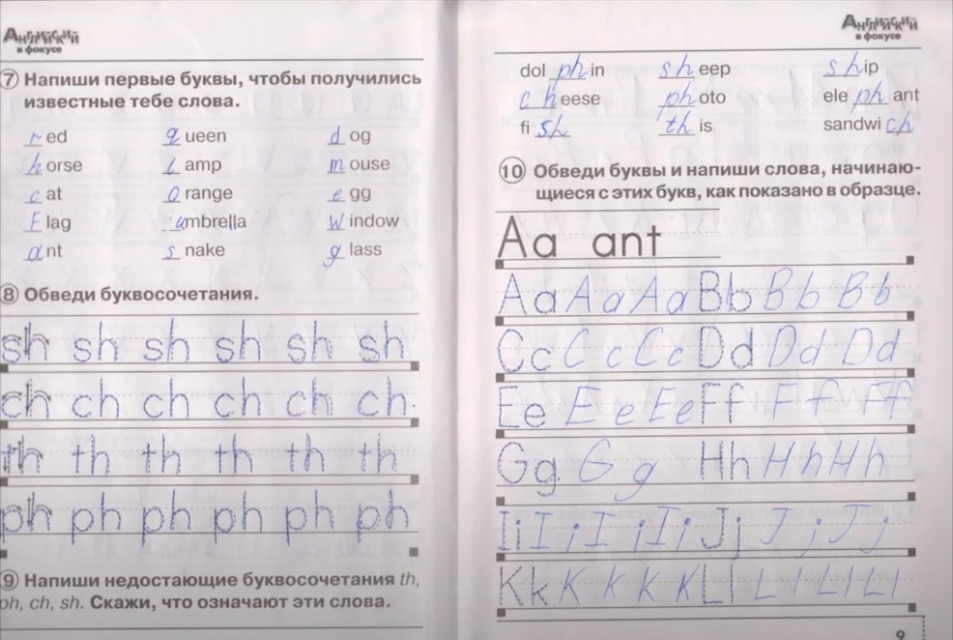 Английский
в фокусе
7 Напиши первые буквы, чтобы получились
известные тебе слова.
red queen dog
horse lamp mouse
cat orange egg
Flag umbrella Window
ant snake glass
8 Обведи буквосочетания.
sh sh sh sh sh sh
ch ch ch ch ch ch
th th th th th th
ph ph ph ph ph ph
9 Напиши недостающие буквосочетания th,
ph, ch, sh. Скажи, что означают эти слова.
Английский
в фокусе
dolphin sheep ship
cheese photo elephant
fish this sandwich
10 Обведи буквы и напиши слова, начинаю-
щиеся с этих букв, как показано в образце.
Aa ant
Aa Aa Aa Bb Bb Bb
Cc Cc Cc Dd Dd Dd
Ee Ee Ee Ff Ff Ff
Gg Gg Hh Hh Hh
Ii Ii Ii Ii Jj Jj Jj
Kk Kk Kk Ll Ll Ll Ll
9